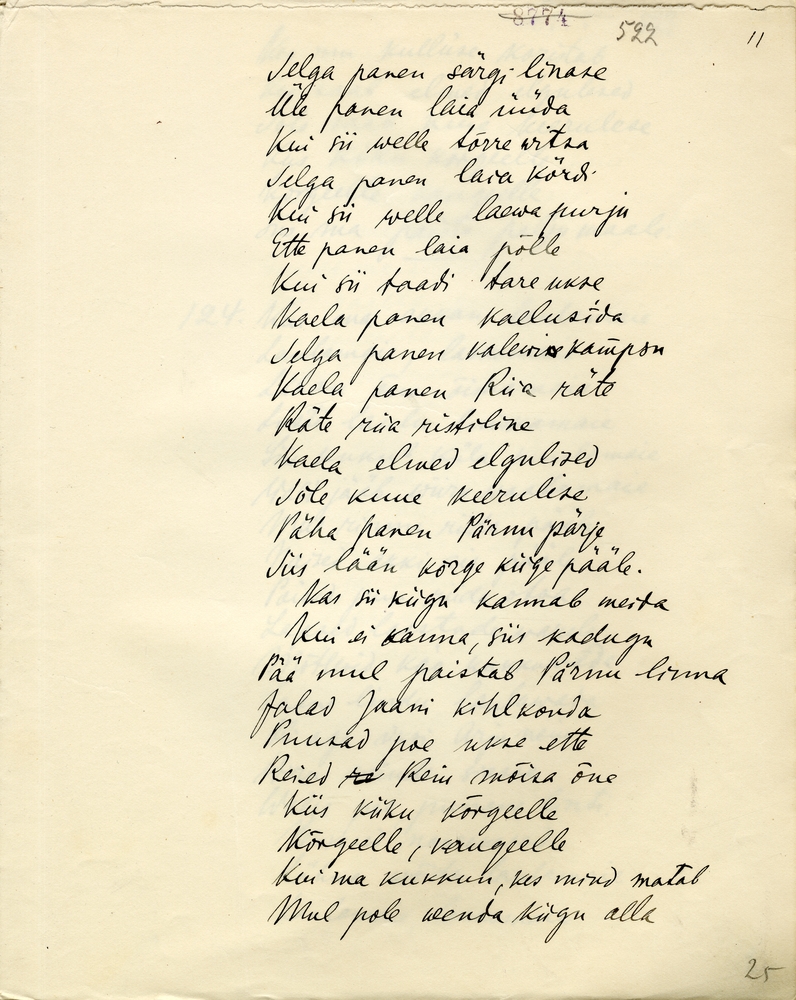 8774
522
11
Selga panen särgi linase
Üle panen laia üüda
Kui sii welle tõrre witsa
Selga panen laia kördi
Kui sii welle laewa purju
Ette panen laia põlle
Kui sii taadi tare ukse
Kaela panen kaelusida
Selga panen kalewin kampsu
Kaela panen Riia räte
Räte riia ristiline
Kaela elmed elgulised
Sõle kuue keerulise
Päha panen Pärnu pärje
Siis lään kõrge kiige pääle.
Kas sii kiigu kannab meida
Kui ei kanna, siis kadugu
Pää mul paistab Pärnu linna
Jalad Jaani kihlkonda
Puusad poe ukse ette
Reied Reiu mõisa õue
Kiis kiiku kõrgeelle
Kõrgeelle, kaugeelle
Kui ma kukkun, kes mind matab
Mul pole wenda kiigu alla
25